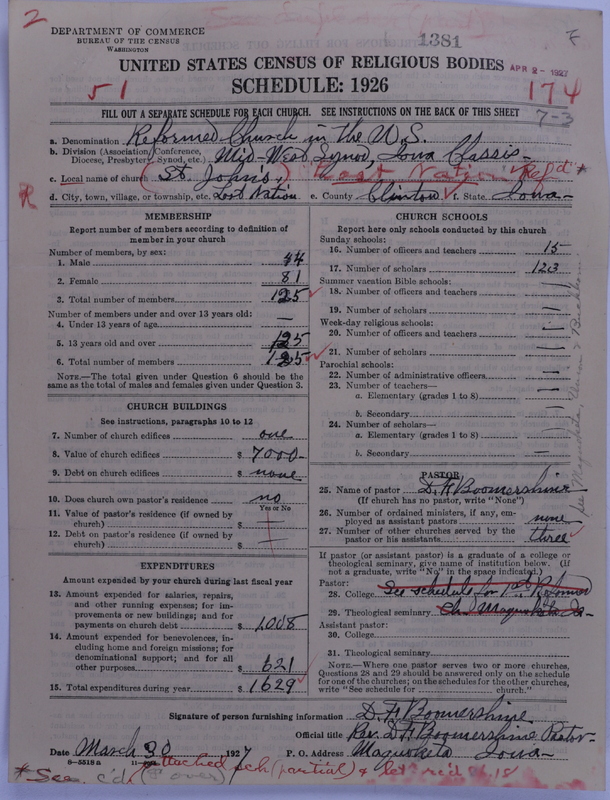 2
DEPARTMENT OF COMMERCE
BUREAU OF THE CENSUS
WASHINGTON
1381
UNITED STATES CENSUS OF RELIGIOUS BODIES
APR 2 - 1927
SCHEDULE: 1926
51
174
FILL OUT A SEPARATE SCHEDULE FOR EACH CHURCH. SEE INSTRUCTIONS ON THE BACK OF THIS SHEET
7-3
a. Denomination Reformed Church in the U.S.
b. Division (Association, Conference, Diocese, Presbytery, Synod, etc.) Mid-West Synod, Iowa Classis
c. Local name of church (St. Johns) Lost Nation Ref'd *
R
d. City, town, village, or township, etc. Lost Nation e. County Clinton f. State Iowa
MEMBERSHIP
Report number of members according to definition of
member in your church
Number of members, by sex:
1. Male 44
2. Female 81
3. Total number of members 125
Number of members under and over 13 years old:
4. Under 13 years of age —
5. 13 years old and over 125
6. Total number of members 125
NOTE.—The total given under Question 6 should be
the same as the total of males and females given under Question 3.
CHURCH BUILDINGS
See instructions, paragraphs 10 to 12
7. Number of church edifices one
8. Value of church edifices $ 7000
9. Debt on church edifices $ none
10. Does church own pastor's residence no
Yes or No
11. Value of pastor's residence (if owned by
church) $
12. Debt on pastor's residence (if owned by
church) $
EXPENDITURES
Amount expended by your church during last fiscal year
13. Amount expended for salaries, repairs,
and other running expenses; for im-
provements or new buildings; and for
payments on church debt $ 1008
14. Amount expended for benevolences, in-
cluding home and foreign missions; for
denominational support; and for all
other purposes $ 621
15. Total expenditures during year $ 1629
CHURCH SCHOOLS
Report here only schools conducted by this church
Sunday schools:
16. Number of officers and teachers 15
17. Number of scholars 123
Summer vacation Bible schools:
18. Number of officers and teachers —
19. Number of scholars —
Week-day religious schools:
20. Number of officers and teachers —
21. Number of scholars —
Parochial schools:
22. Number of administrative officers —
23. Number of teachers—
a. Elementary (grades 1 to 8) —
b. Secondary —
24. Number of scholars—
a. Elementary (grades 1 to 8) —
b. Secondary —
PASTOR
25. Name of pastor D. F. Boomershine
(If church has no pastor, write "None")
26. Number of ordained ministers, if any, em-
ployed as assistant pastors none
27. Number of other churches served by the
pastor or his assistants three
If pastor (or assistant pastor) is a graduate of a college or
theological seminary, give name of institution below. (If
not a graduate, write "No" in the space indicated.)
Pastor:
28. College See schedule for 1st Reformed
29. Theological seminary Ch. Maquoketa Ia
Assistant pastor:
30. College
31. Theological seminary
NOTE.—Where one pastor serves two or more churches,
Questions 28 and 29 should be answered only on the schedule
for one of the churches; on the schedules for the other churches,
write "See schedule for church."
Signature of person furnishing information D. F. Boomershine
Official title Rev. D. F. Boomershine Pastor
Date March 30 1927 P. O. Address Maquoketa Iowa
8-5518a
* See attached sch (partial) & let